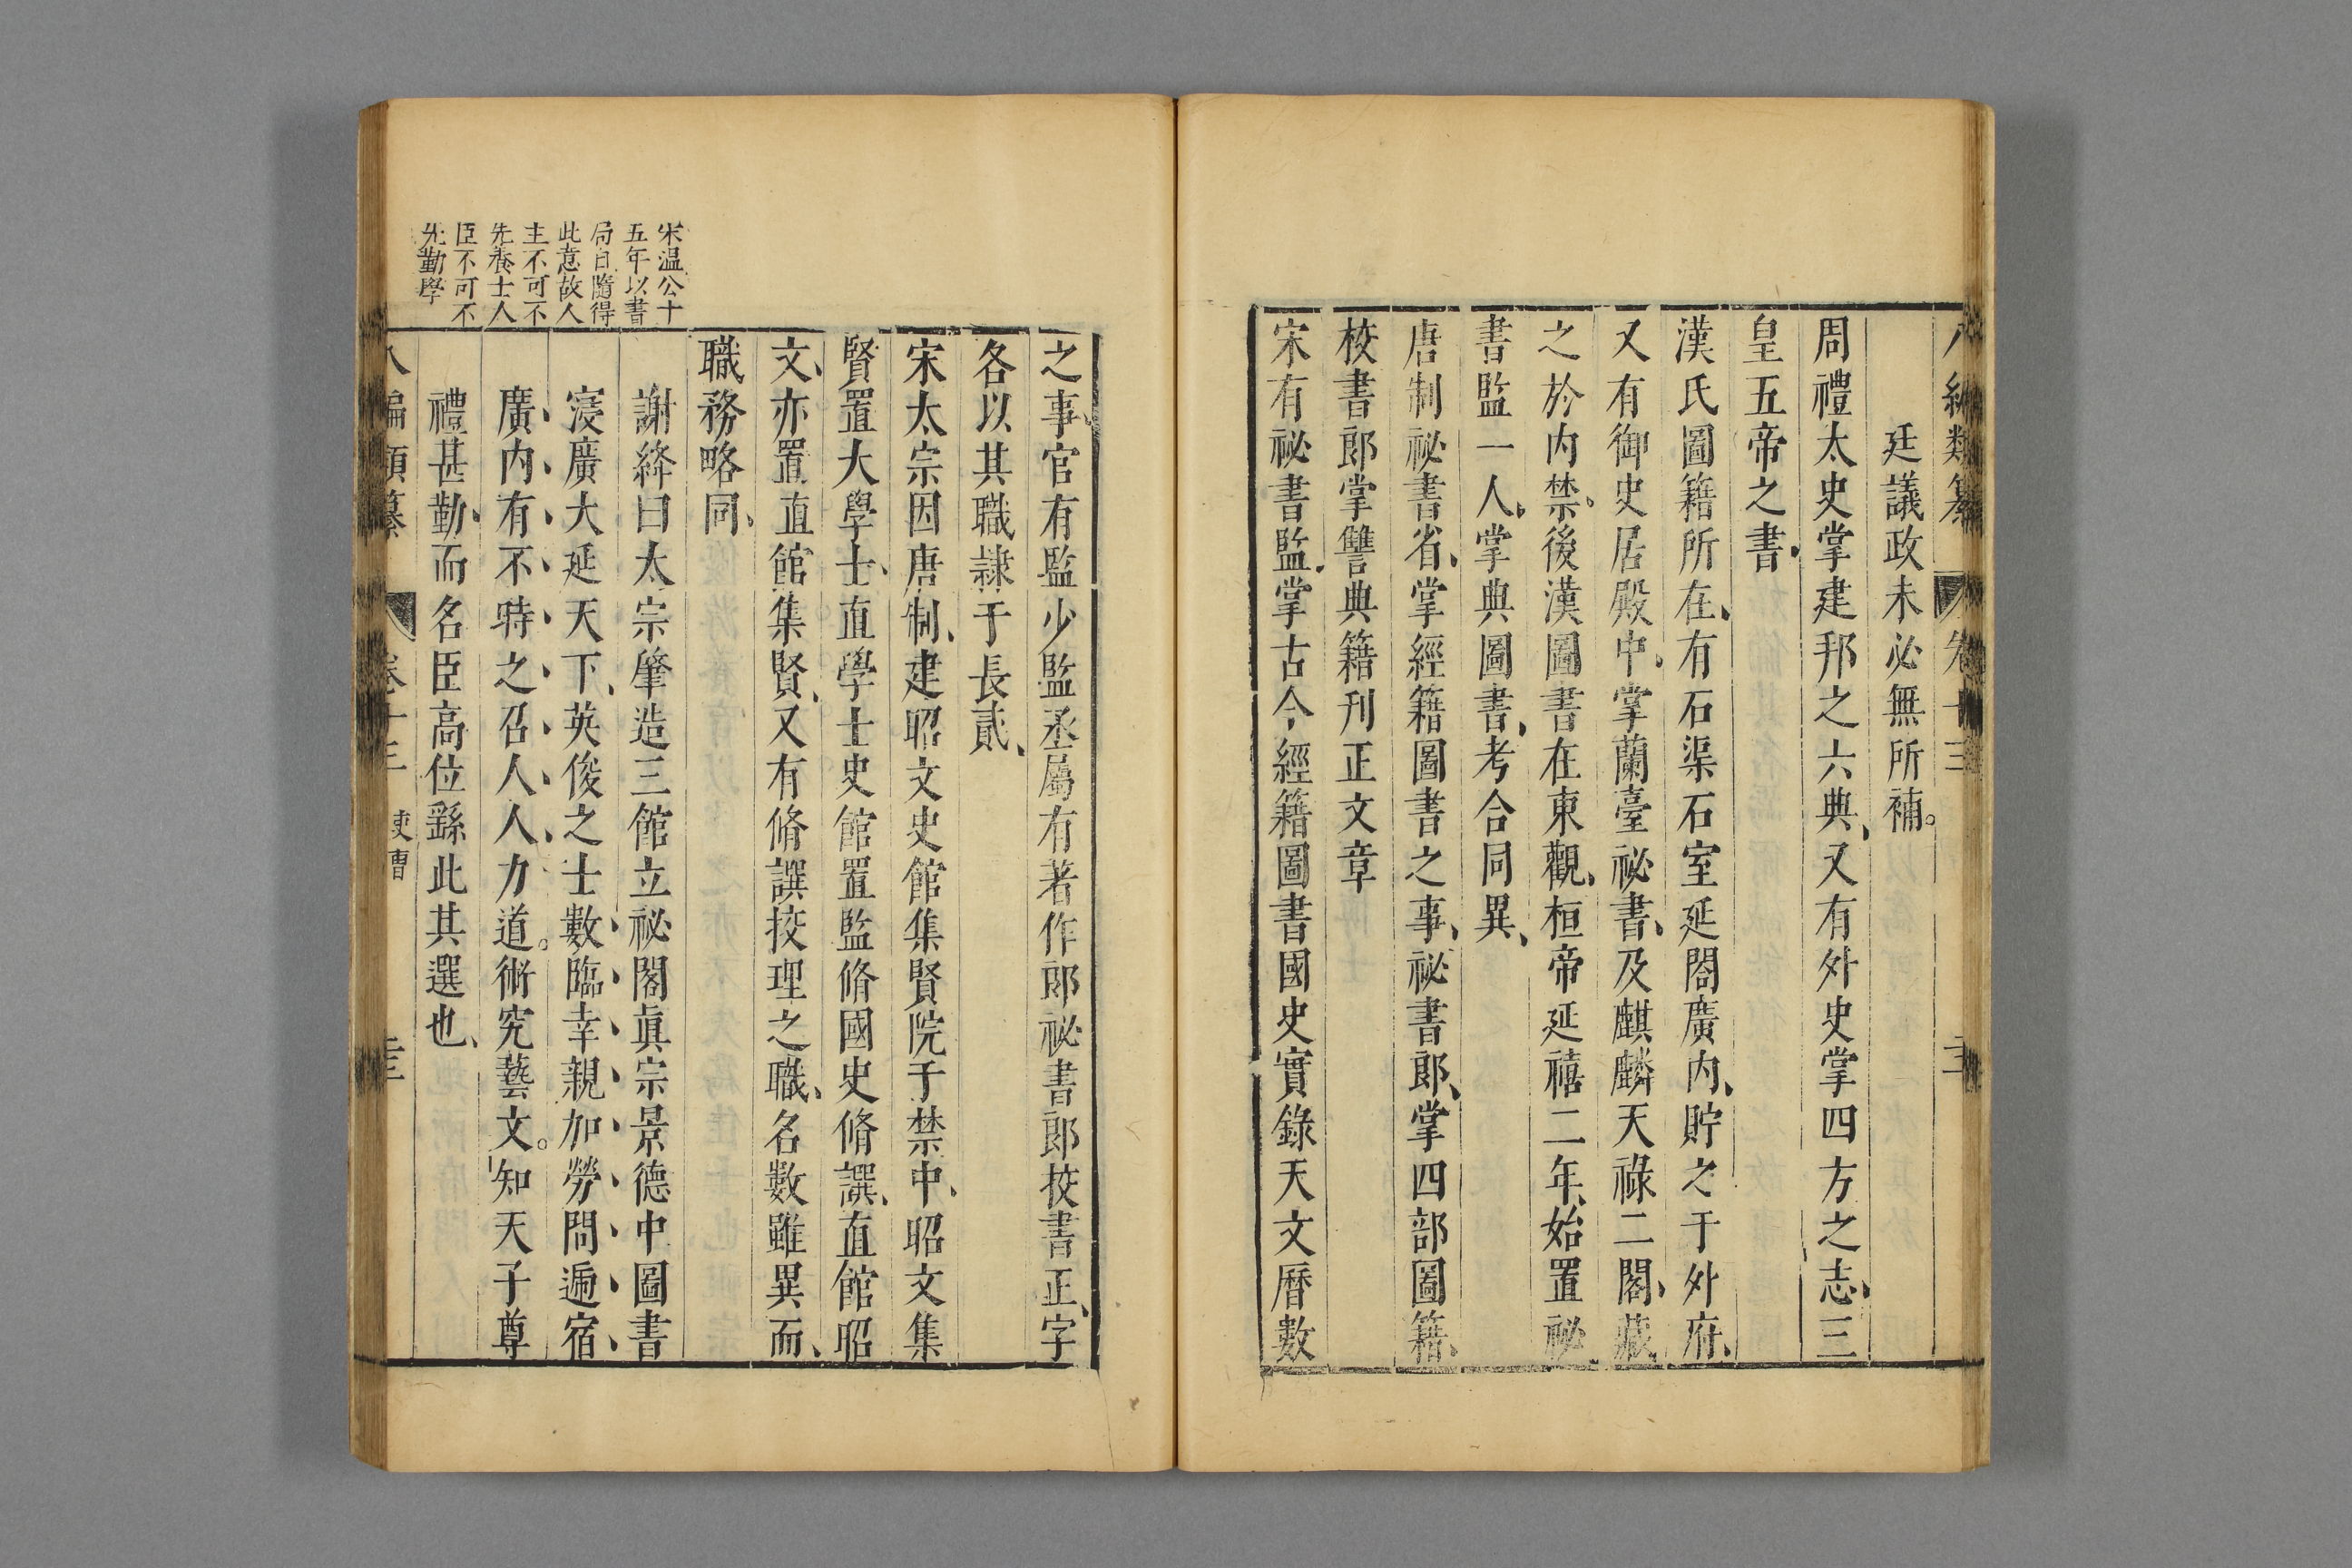 廷議政未必無所補。
周禮太史掌建邦之六典、又有外史掌四方之志、三
皇五帝之書、
漢氏圖籍所在、有石渠石室延閣廣内、貯之于外府、
又有御史居殿中、掌蘭臺祕書、及麒麟天祿二閣、藏
之於内禁。後漢圖書在東觀、桓帝延禧二年、始置祕
書監一人、掌典圖書、考合同異、
唐制祕書省、掌經籍圖書之事、祕書郎、掌四部圖籍、
校書郎掌讐典籍刊正文章
宋有祕書監、掌古今經籍圖書國史實錄天文曆數
之事、官有監少監丞屬有著作郎祕書郎挍書正、字
各以其職隷于長貳、
宋太宗因唐制、建昭文史館集賢院于禁中、昭文集
賢置大學士、直學士史館置監脩國史脩譔、直館昭
文、亦置直館集賢、又有脩譔挍理之職、名數雖異而、
職務略同、
謝絳曰太宗肇造三館立祕閣眞宗景德中圖書
寖廣大延天下、英俊之士數臨幸親加勞問遍宿
廣内有不時之召人人力道。術究藝文。知天子尊
禮甚勤、而名臣高位繇此其選也、
宋温公十
五年以書
局自隨得
此意故人
主不可不
先養士人
臣不可不
先勤學